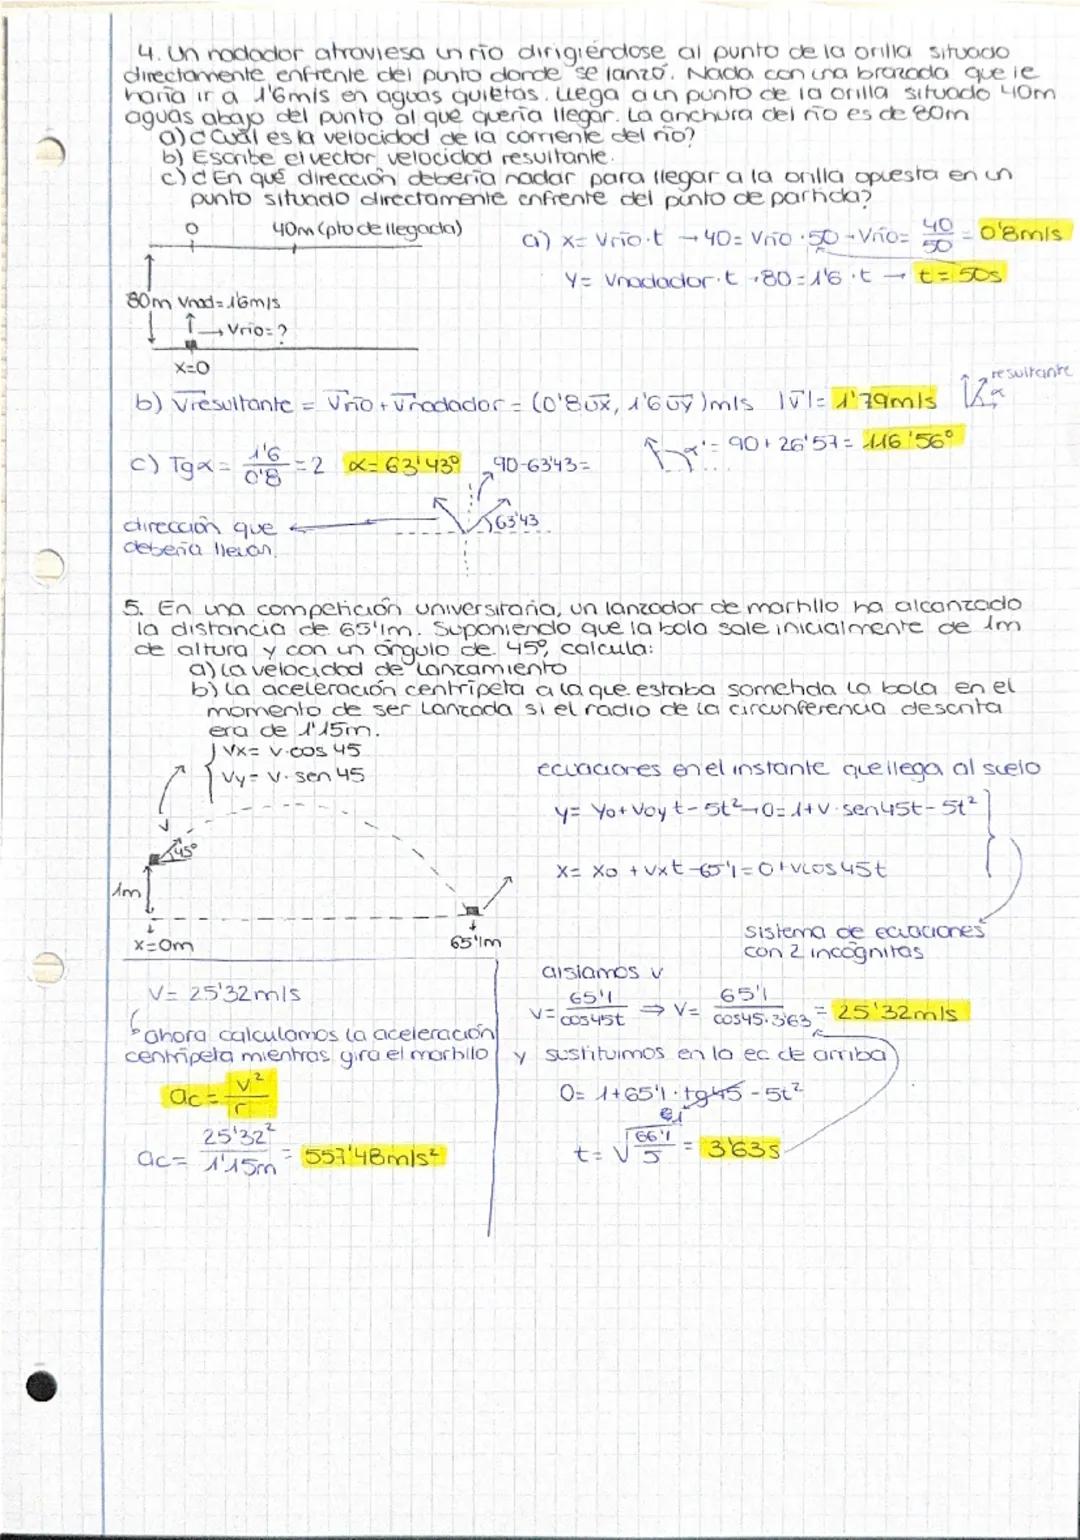 4. Un nadador atraviesa un río dirigiéndose al punto de la orilla situado
directamente enfrente del punto donde se lanzó. Nada con una brazada que le
haría ir a 1'6m/s en aguas quietas. Llega a un punto de la orilla situado 40m
aguas abajo del punto al que quería llegar. La anchura del río es de 80m
a) ¿Cuál es la velocidad de la corriente del río?
b) Escribe el vector velocidad resultante.
c) ¿En qué dirección debería nadar para llegar a la orilla opuesta en un
punto situado directamente enfrente del punto de partida?
0 40m (pto de llegada)
a) x= Vrío·t → 40= Vrío·50 → Vrío= 40/50 = 0'8m/s
y= Vnadador·t → 80=1'6·t → t= 50s
80m Vnad=1'6m/s
→ Vrío=?
x=0
b) Vresultante = Vrío + Vnadador = (0'8 ux, 1'6 uy) m/s |v|= 1'79m/s
resultante
α
c) Tgα = 1'6/0'8 = 2 α= 63'43º 90-63'43=
α'= 90+26'57= 116'56º
63'43
dirección que
debería llevar.
5. En una competición universitaria, un lanzador de martillo ha alcanzado
la distancia de 65'1m. Suponiendo que la bola sale inicialmente de 1m
de altura y con un ángulo de 45º, calcula:
a) La velocidad de lanzamiento
b) La aceleración centrípeta a la que estaba sometida la bola en el
momento de ser lanzada si el radio de la circunferencia descrita
era de 1'15m.
Vx= v·cos 45
Vy= v·sen 45
ecuaciones en el instante que llega al suelo
y= yo+ Voy t-5t² → 0= 1+v·sen45t-5t²
x= xo + Vxt → 65'1=0+vcos45t
45º
1m
x=0m
65'1m
sistema de ecuaciones
con 2 incógnitas
aislamos v
v= 65'1/cos45t ⇒ v= 65'1/cos45·3'63 = 25'32m/s
y sustituimos en la ec de arriba
0= 1+65'1·tg45-5t²
1
t= √66'1/5 = 3'63s
V= 25'32m/s
ahora calculamos la aceleración
centrípeta mientras gira el martillo
ac= v²/r
ac= 25'32²/1'15m = 557'48m/s²